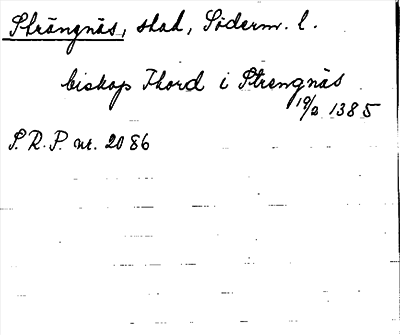 Strängnäs, stad, Söderm. l.
biskop Thord i Strengnäs
19/2 1385
S.R.P. nr. 2086